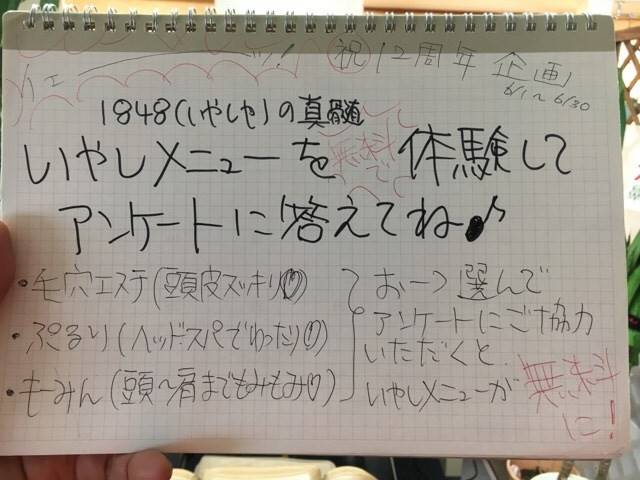 祝 12周年 企画
6/1～6/30
1848(いやしや)の真髄
いやしメニューを無料で体験して
アンケートに答えてね♪
・毛穴エステ(頭皮スッキリ♡)
・ぷるり(ヘッドスパでゆったり♡)
・もーみん(頭～肩までもみもみ♡)
お一つ選んで
アンケートにご協力
いただくと
いやしメニューが無料
に!